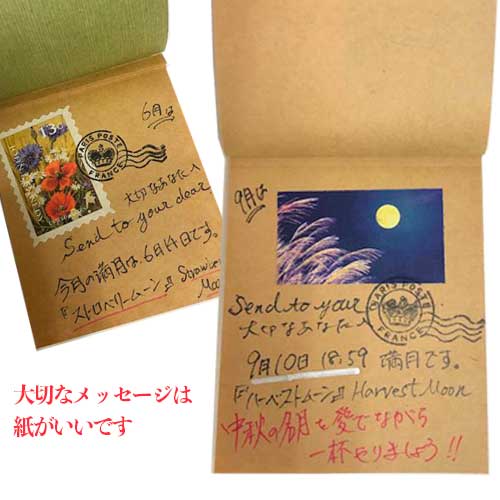 6月は
13
PARIS POSTE
FRANCE
大切なあなたへ
Send to your dear
今月の満月は、6月14日です。
『ストロベリームーン』 Strawber
Moo
9月は
Send to your
PARIS POSTE
FRANCE
大切なあなたに
9月10日 18:59 満月です。
『ハーベストムーン』 Harvest Moon
中秋の名月を愛でながら
一杯やりましょう!!
大切なメッセージは
紙がいいです